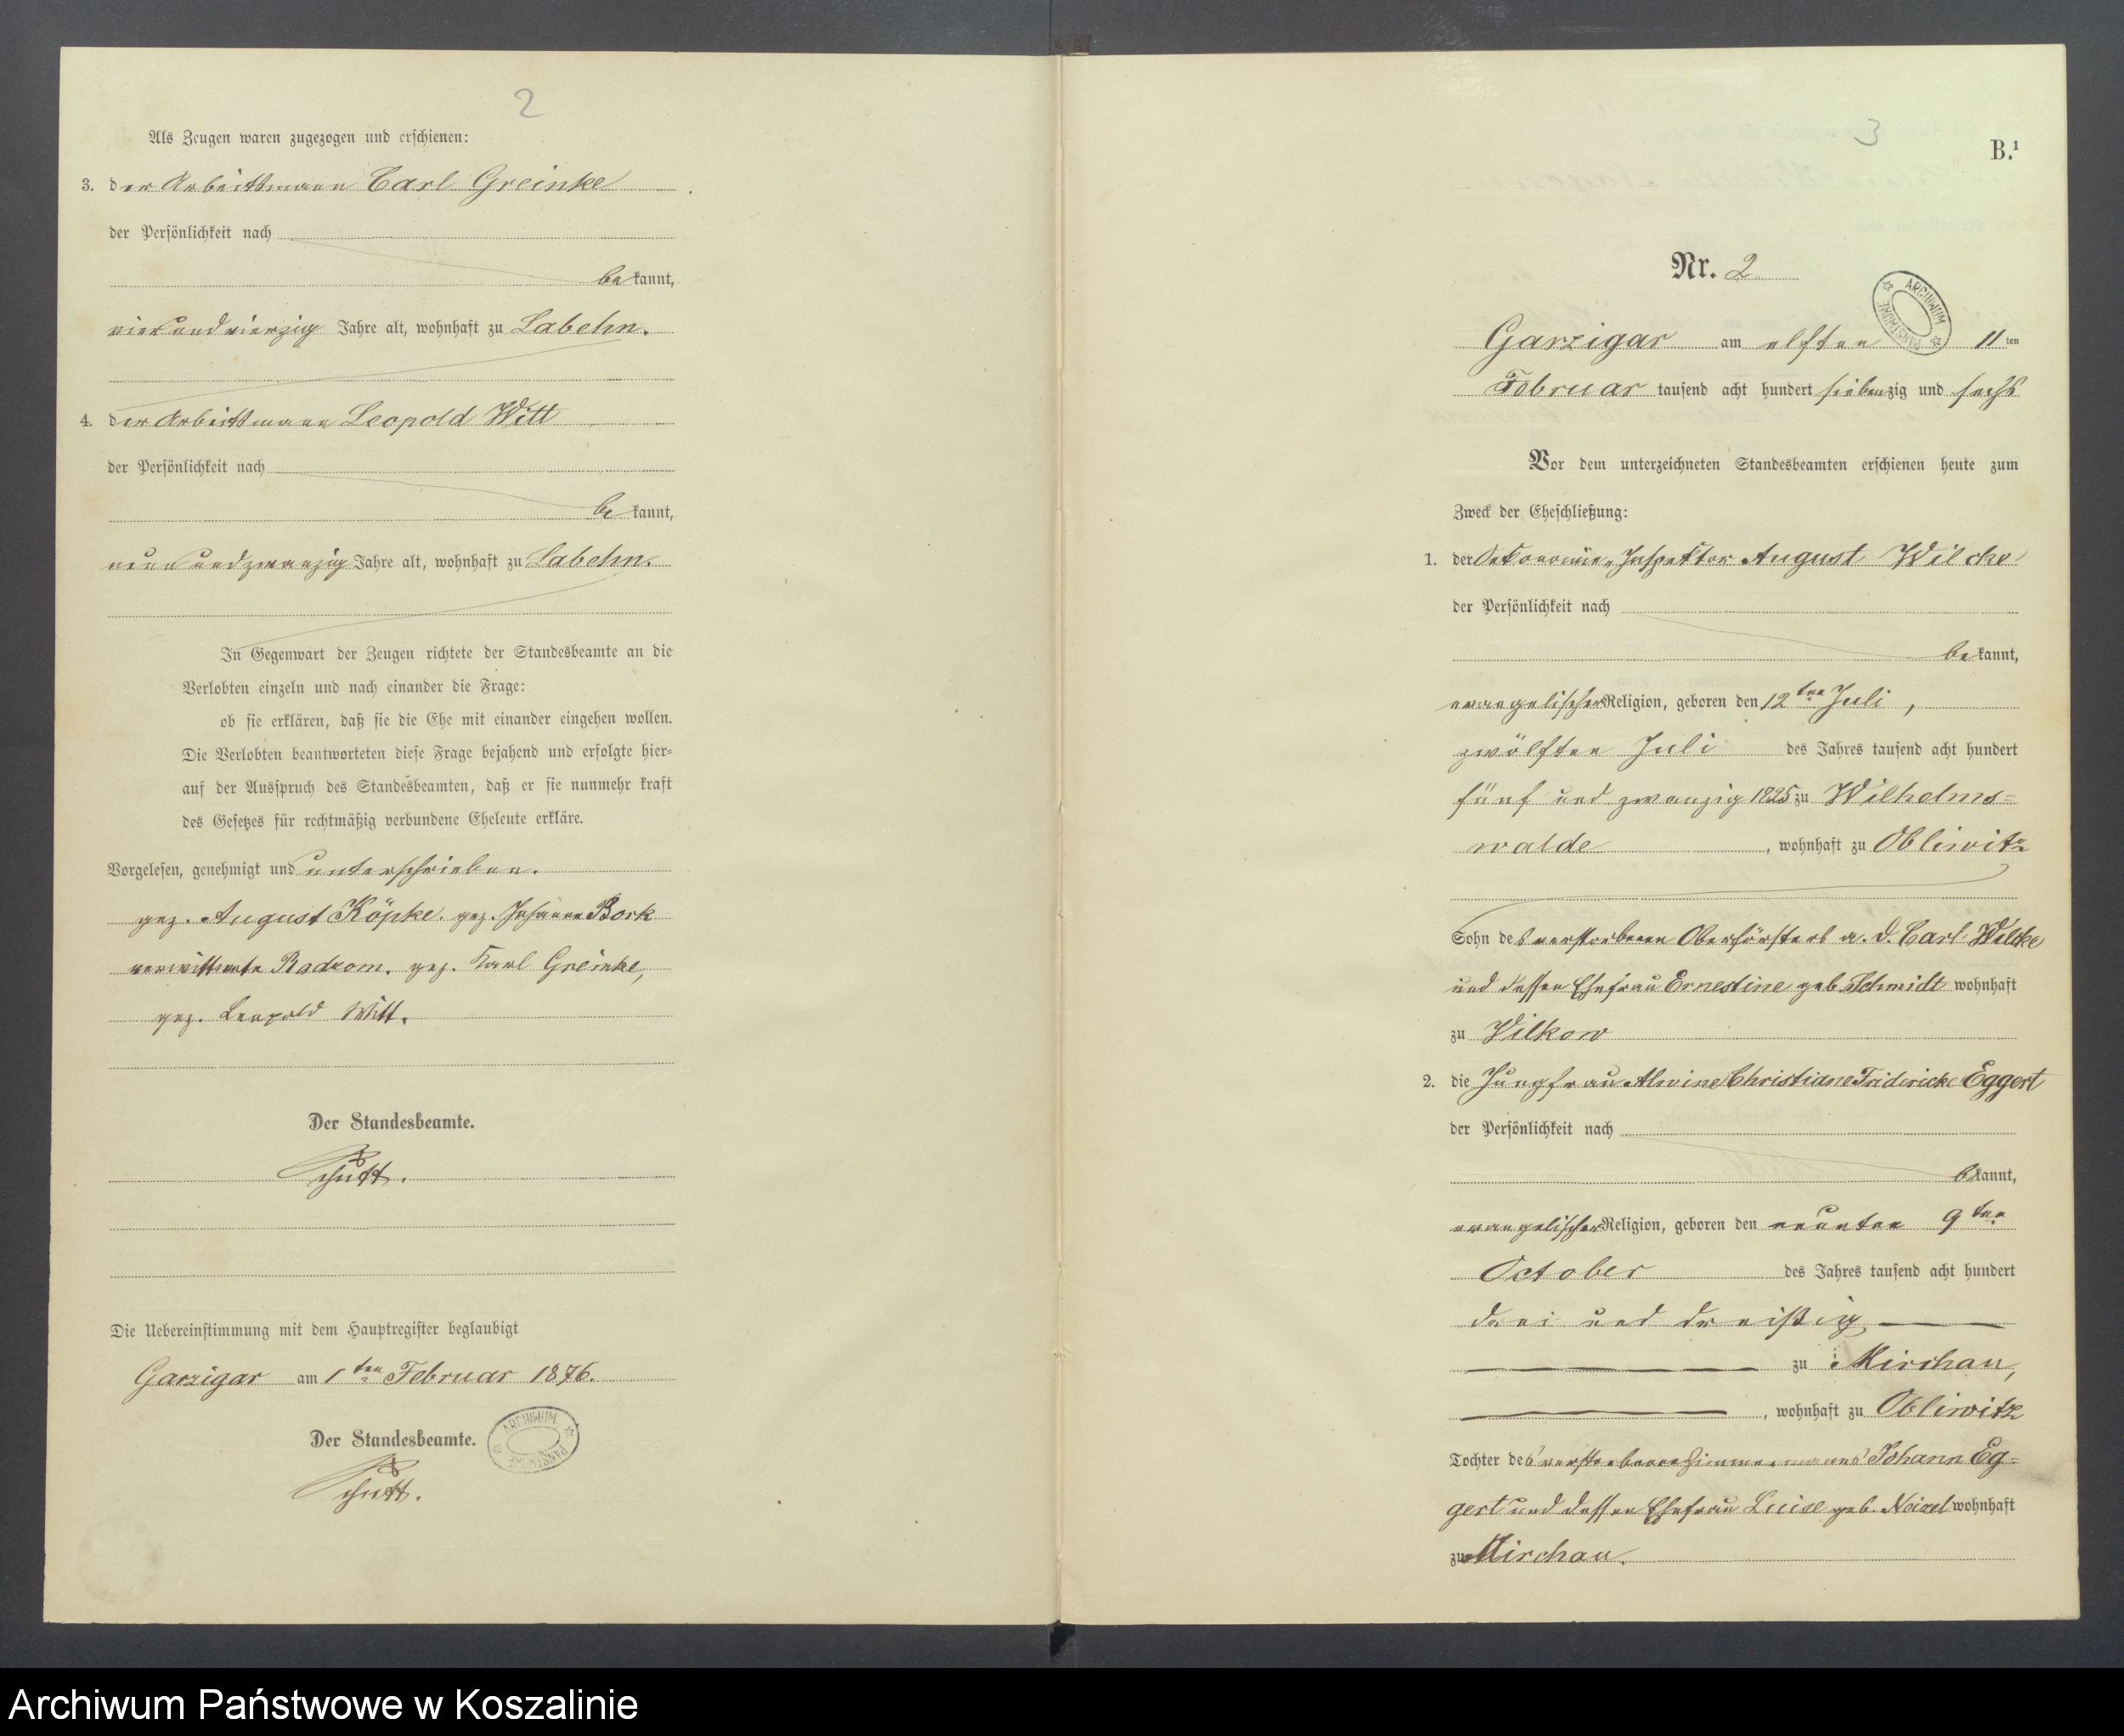 2
Als Zeugen waren zugezogen und erschienen:
3. der Arbeitsmann Carl Greinke
der Persönlichkeit nach
bekannt,
vier und vierzig Jahre alt, wohnhaft zu Labehn.
4. der Arbeitsmann Leopold Witt
der Persönlichkeit nach
bekannt,
neun und zwanzig Jahre alt, wohnhaft zu Labehn.
In Gegenwart der Zeugen richtete der Standesbeamte an die
Verlobten einzeln und nach einander die Frage:
ob sie erklären, daß sie die Ehe mit einander eingehen wollen.
Die Verlobten beantworteten diese Frage bejahend und erfolgte hier-
auf der Ausspruch des Standesbeamten, daß er sie nunmehr kraft
des Gesetzes für rechtmäßig verbundene Eheleute erkläre.
Vorgelesen, genehmigt und unterschrieben.
gez. August Köpke. gez. Johanne Bork
verwittwete Radzom. gez. Karl Greinke,
gez. Leopold Witt.
Der Standesbeamte.
Schütt.
Die Uebereinstimmung mit dem Hauptregister beglaubigt
Garzigar am 1ten Februar 1876.
Der Standesbeamte.
ARCHIWUM PAŃSTWOWE
Schütt.
3
B.1
Nr. 2
ARCHIWUM PAŃSTWOWE
Garzigar am elften 11ten
Februar tausend acht hundert siebenzig und sechs
Vor dem unterzeichneten Standesbeamten erschienen heute zum
Zweck der Eheschließung:
1. der Oekonomie-Inspektor August Wilcke
der Persönlichkeit nach
bekannt,
evangelischer Religion, geboren den 12ten Juli,
zwölften Juli des Jahres tausend acht hundert
fünf und zwanzig 1825 zu Wilhelms=
walde, wohnhaft zu Obliwitz
Sohn des verstorbenen Oberförsters a. D. Carl Wilcke
und dessen Ehefrau Ernestine geb. Schmidt wohnhaft
zu Wilkow
2. die Jungfrau Alwine Christiane Fridericke Eggert
der Persönlichkeit nach
bekannt,
evangelischer Religion, geboren den neunten 9ten
October des Jahres tausend acht hundert
drei und dreißig
zu Mirchau,
, wohnhaft zu Obliwitz
Tochter des verstorbenen Zimmermanns Johann Eg=
gert und dessen Ehefrau Luise geb. wohnhaft
zu Mirchau.
Archiwum Państwowe w Koszalinie